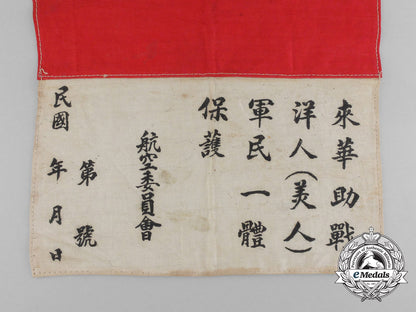 來華助戰
洋人(美人)
軍民一體
保護
航空委員會
第 號
民國 年 月 日
eMedals